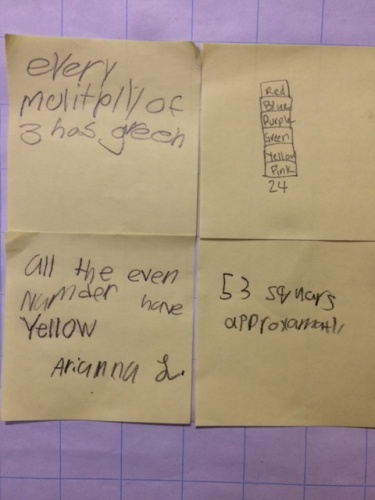 every
mulitplly of
3 has green
Red
Blue
Purple
Green
Yellow
Pink
24
all the even
numder have
Yellow
Arianna L.
53 squars
approxamatli